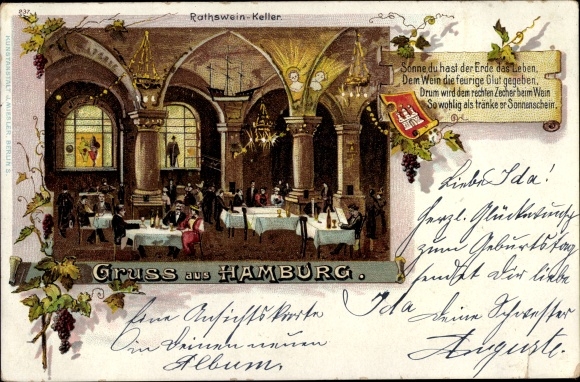 237.
Rathswein-Keller.
Sonne du hast der Erde das Leben,
Dem Wein die feurige Glut gegeben,
Drum wird dem rechten Zecher beim Wein
So wohlig als tränke er Sonnenschein.
KUNSTANSTALT J. MIESLER, BERLIN S.
Gruss aus Hamburg.
Liebe Ida!
Herzl. Glückwunsch
zum Geburtstag
sendet Dir liebe
Ida deine Schwester
Auguste.
Eine Ansichtskarte
in Deinen neuen
Album.